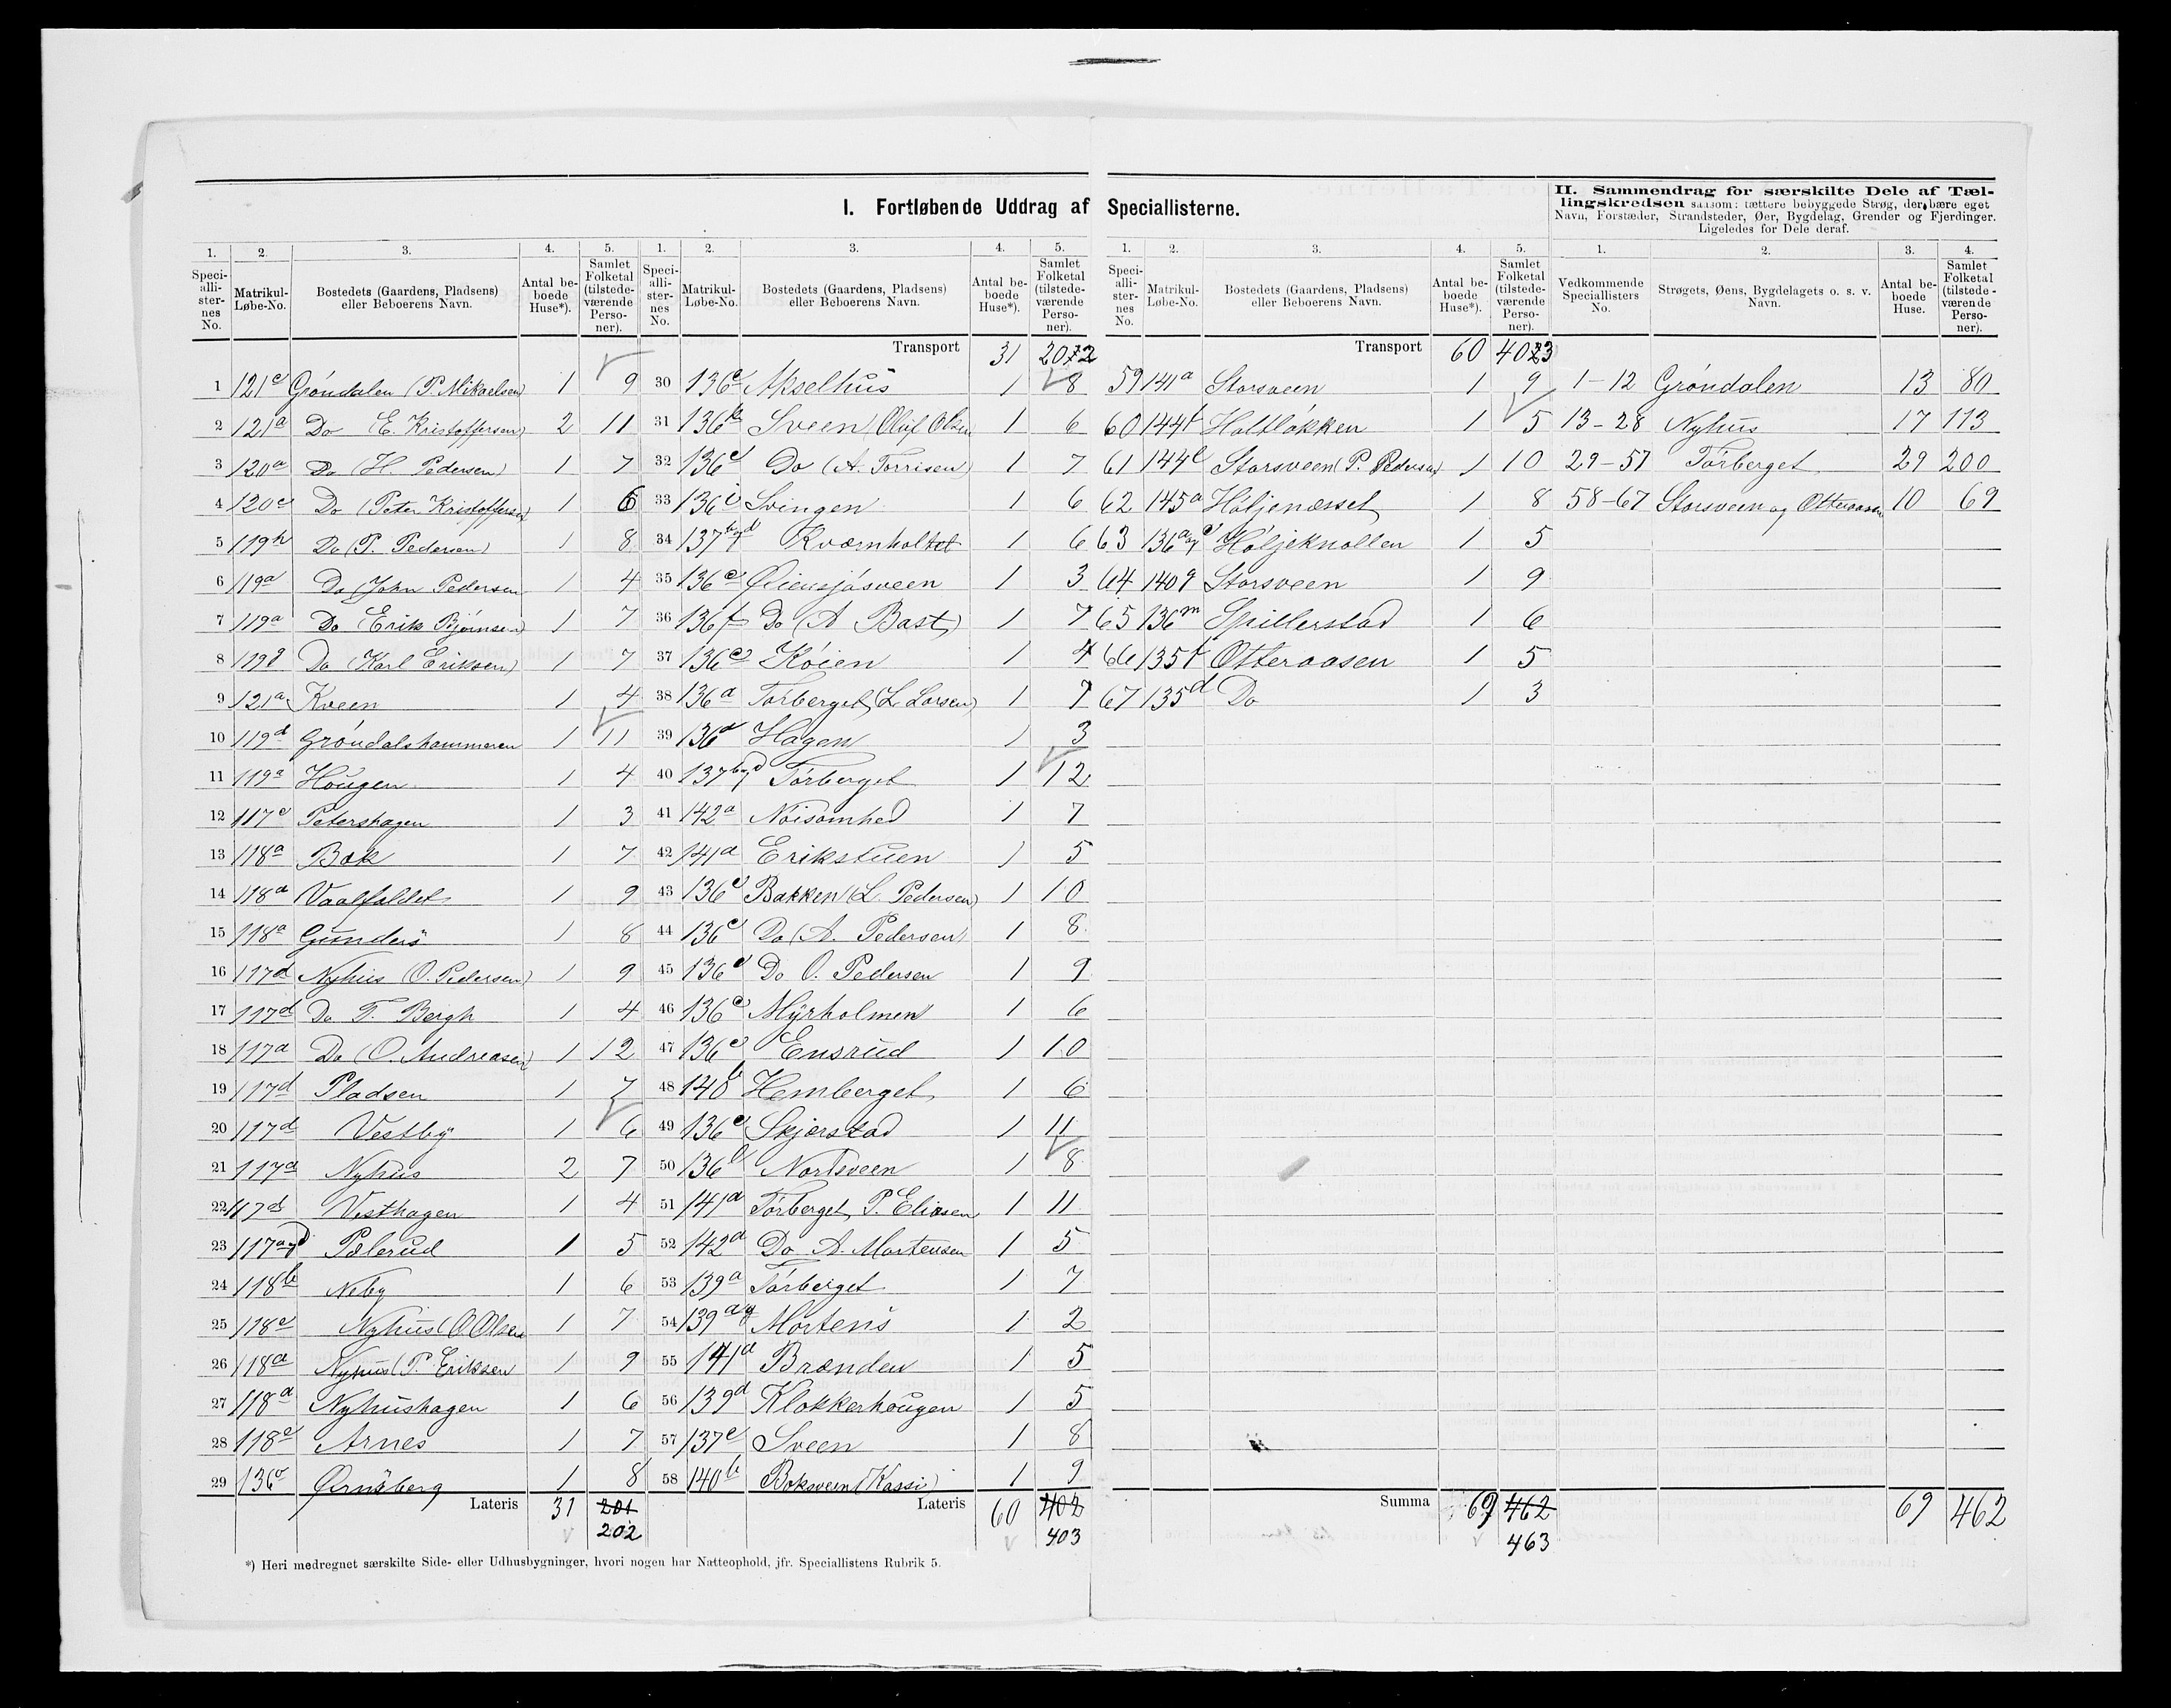 I. Fortløbende Uddrag af Speciallisterne.
II. Sammendrag for særskilte Dele af Tæl-
lingskredsen saasom: tættere bebyggede Strøg, der bære eget
Navn, Forstæder, Strandsteder, Øer, Bygdelag, Grender og Fjerdinger.
Ligeledes for Dele deraf.
1. 2. 3. 4. 5.
Speci-alli-ster-nes No. Matrikul-Løbe-No. Bostedets (Gaardens, Pladsens) eller Beboerens Navn. Antal be-boede Huse*). Samlet Folketal (tilstede-værende Perso-ner).
1 121c Gröndalen (P. Mikaelsen) 1 9
2 121a Do E. Kristoffersen) 2 11
3 120a Do (H. Pedersen) 1 7
4 120c Do (Peter Kristoffersen 1 6
5 119h Do (P. Pedersen) 1 8
6 119a Do (John Pedersen 1 4
7 119a Do Erik Björnsen) 1 7
8 119g Do (Karl Eriksen) 1 7
9 121a Kveen 1 4
10 119d Gröndalshammeren 1 11
11 119a Hougen 1 4
12 117c Petershagen 1 3
13 118a Bak 1 7
14 118a Vaalfaldet 1 9
15 118a Gunders 1 8
16 117d Nyhus (O. Pedersen) 1 9
17 117d Do T. Bergh 1 4
18 117a Do (O. Andreasen) 1 12
19 117d Pladsen 1 7
20 117d Vestby 1 6
21 117a Nyhus 2 7
22 117d Vesthagen 1 4
23 117a og d Pælerud 1 5
24 118b Neby 1 6
25 118c Nyhus (O Olsen 1 7
26 118a Nyhus (P. Eriksen 1 9
27 118a Nyhushagen 1 6
28 118c Arnes 1 7
29 136 Örnsberg 1 8
Lateris 31 201
202
1. 2. 3. 4. 5.
Speci-alli-ster-nes No. Matrikul-Løbe-No. Bostedets (Gaardens, Pladsens) eller Beboerens Navn. Antal be-boede Huse*). Samlet Folketal (tilstede-værende Perso-ner).
Transport 31 2012
30 136c Akselhus 1 8
31 136k Sveen (Oluf Olsen 1 6
32 136c Do (A. Torrisen) 1 7
33 136i Svingen 1 6
34 137b og d Kværnholtet 1 6
35 136c Öiensjösveen 1 3
36 136f Do (A Bast) 1 7
37 136c Köien 1 4
38 136a Törberget (L Larsen) 1 7
39 136a Hagen 1 3
40 137b og d Törberget 1 12
41 142a Nöisomhed 1 7
42 141a Erikstuen 1 5
43 136c Bakken (L. Pedersen) 1 10
44 136c Do (A. Pedersen) 1 8
45 136c Do O. Pedersen 1 9
46 136c Myrholmen 1 6
47 136c Ensrud 1 10
48 140b Hemberget 1 6
49 136c Skjærstad 1 11
50 136l Nordsveen 1 8
51 141a Törberget, P. Eliasen 1 11
52 142a Do A. Mortensen 1 5
53 139a Törberget 1 7
54 139a og Mortens 1 2
55 141a Brænden 1 5
56 139d Klokkerhougen 1 5
57 137c Sveen 1 8
58 140b Boksveen (Kassi) 1 9
Lateris 60 402
403
1. 2. 3. 4. 5.
Speci-alli-ster-nes No. Matrikul-Løbe-No. Bostedets (Gaardens, Pladsens) eller Beboerens Navn. Antal be-boede Huse*). Samlet Folketal (tilstede-værende Perso-ner).
Transport 60 4023
59 141a Storsveen 1 9
60 144f Holtlökken 1 5
61 144c Storsveen (P. Pedersen) 1 10
62 145a Höljenesset 1 8
63 136a og c Höljeknollen 1 5
64 140g Storsveen 1 9
65 136m Spillerstad 1 6
66 135f Otteraasen 1 5
67 135d Do 1 3
Summa 69 462
463
1. 2. 3. 4.
Vedkommende Speciallisters No. Strøgets, Øens, Bygdelagets o. s. v. Navn. Antal be-boede Huse. Samlet Folketal (tilstede-værende Perso-ner).
1-12 Gröndalen 13 80
13-28 Nyhus 17 113
29-57 Törberget 29 200
58-67 Storsveen og Otteraasen 10 69
69 462
*) Heri medregnet særskilte Side- eller Udhusbygninger, hvori nogen har Natteophold, jfr. Speciallistens Rubrik 5.